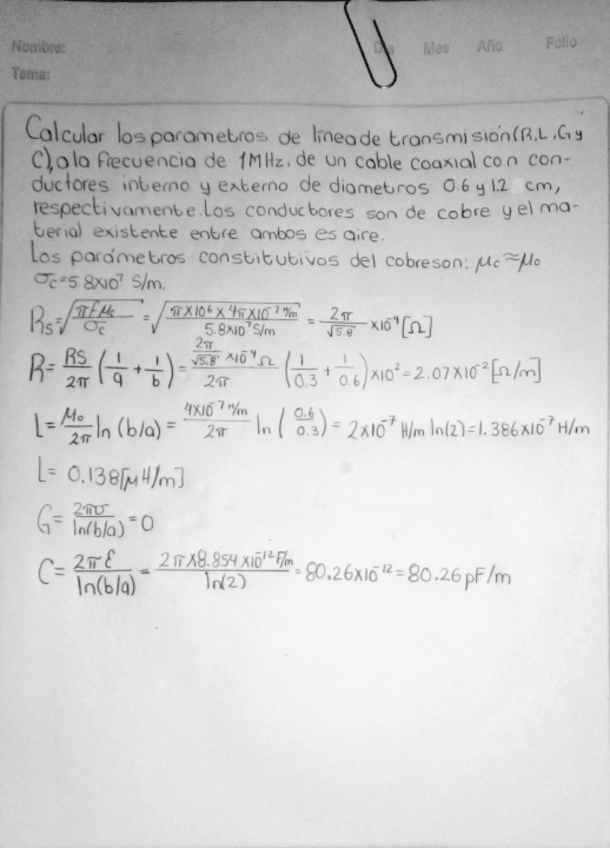 Nombre:
Día Mes Año Folio
Tema:
Calcular los parametros de linea de transmisión (R, L, G y
C), a la frecuencia de 1MHz. de un cable coaxial con con-
ductores interno y externo de diametros 0.6 y 1.2 cm,
respectivamente. Los conductores son de cobre y el ma-
terial existente entre ambos es aire.
Los parámetros constitutivos del cobre son: μc ≈ μ0
σc = 5.8X10⁷ S/m.
Rs = √(πfμc/σc) = √(πX10⁶ X 4πX10⁻⁷ H/m / 5.8X10⁷ S/m) = 2π/√5.8 X10⁻⁴ [Ω]
R = RS/2π (1/a + 1/b) = (2π/√5.8 X10⁻⁴ Ω)/2π (1/0.3 + 1/0.6) X10² = 2.07X10⁻² [Ω/m]
L = μ0/2π ln (b/a) = 4X10⁻⁷ H/m / 2π ln (0.6/0.3) = 2X10⁻⁷ H/m ln(2) = 1.386X10⁻⁷ H/m
L = 0.138 [μH/m]
G = 2πσ/ln(b/a) = 0
C = 2πε/ln(b/a) = 2πX8.854X10⁻¹² F/m / ln(2) = 80.26X10⁻¹² = 80.26 pF/m